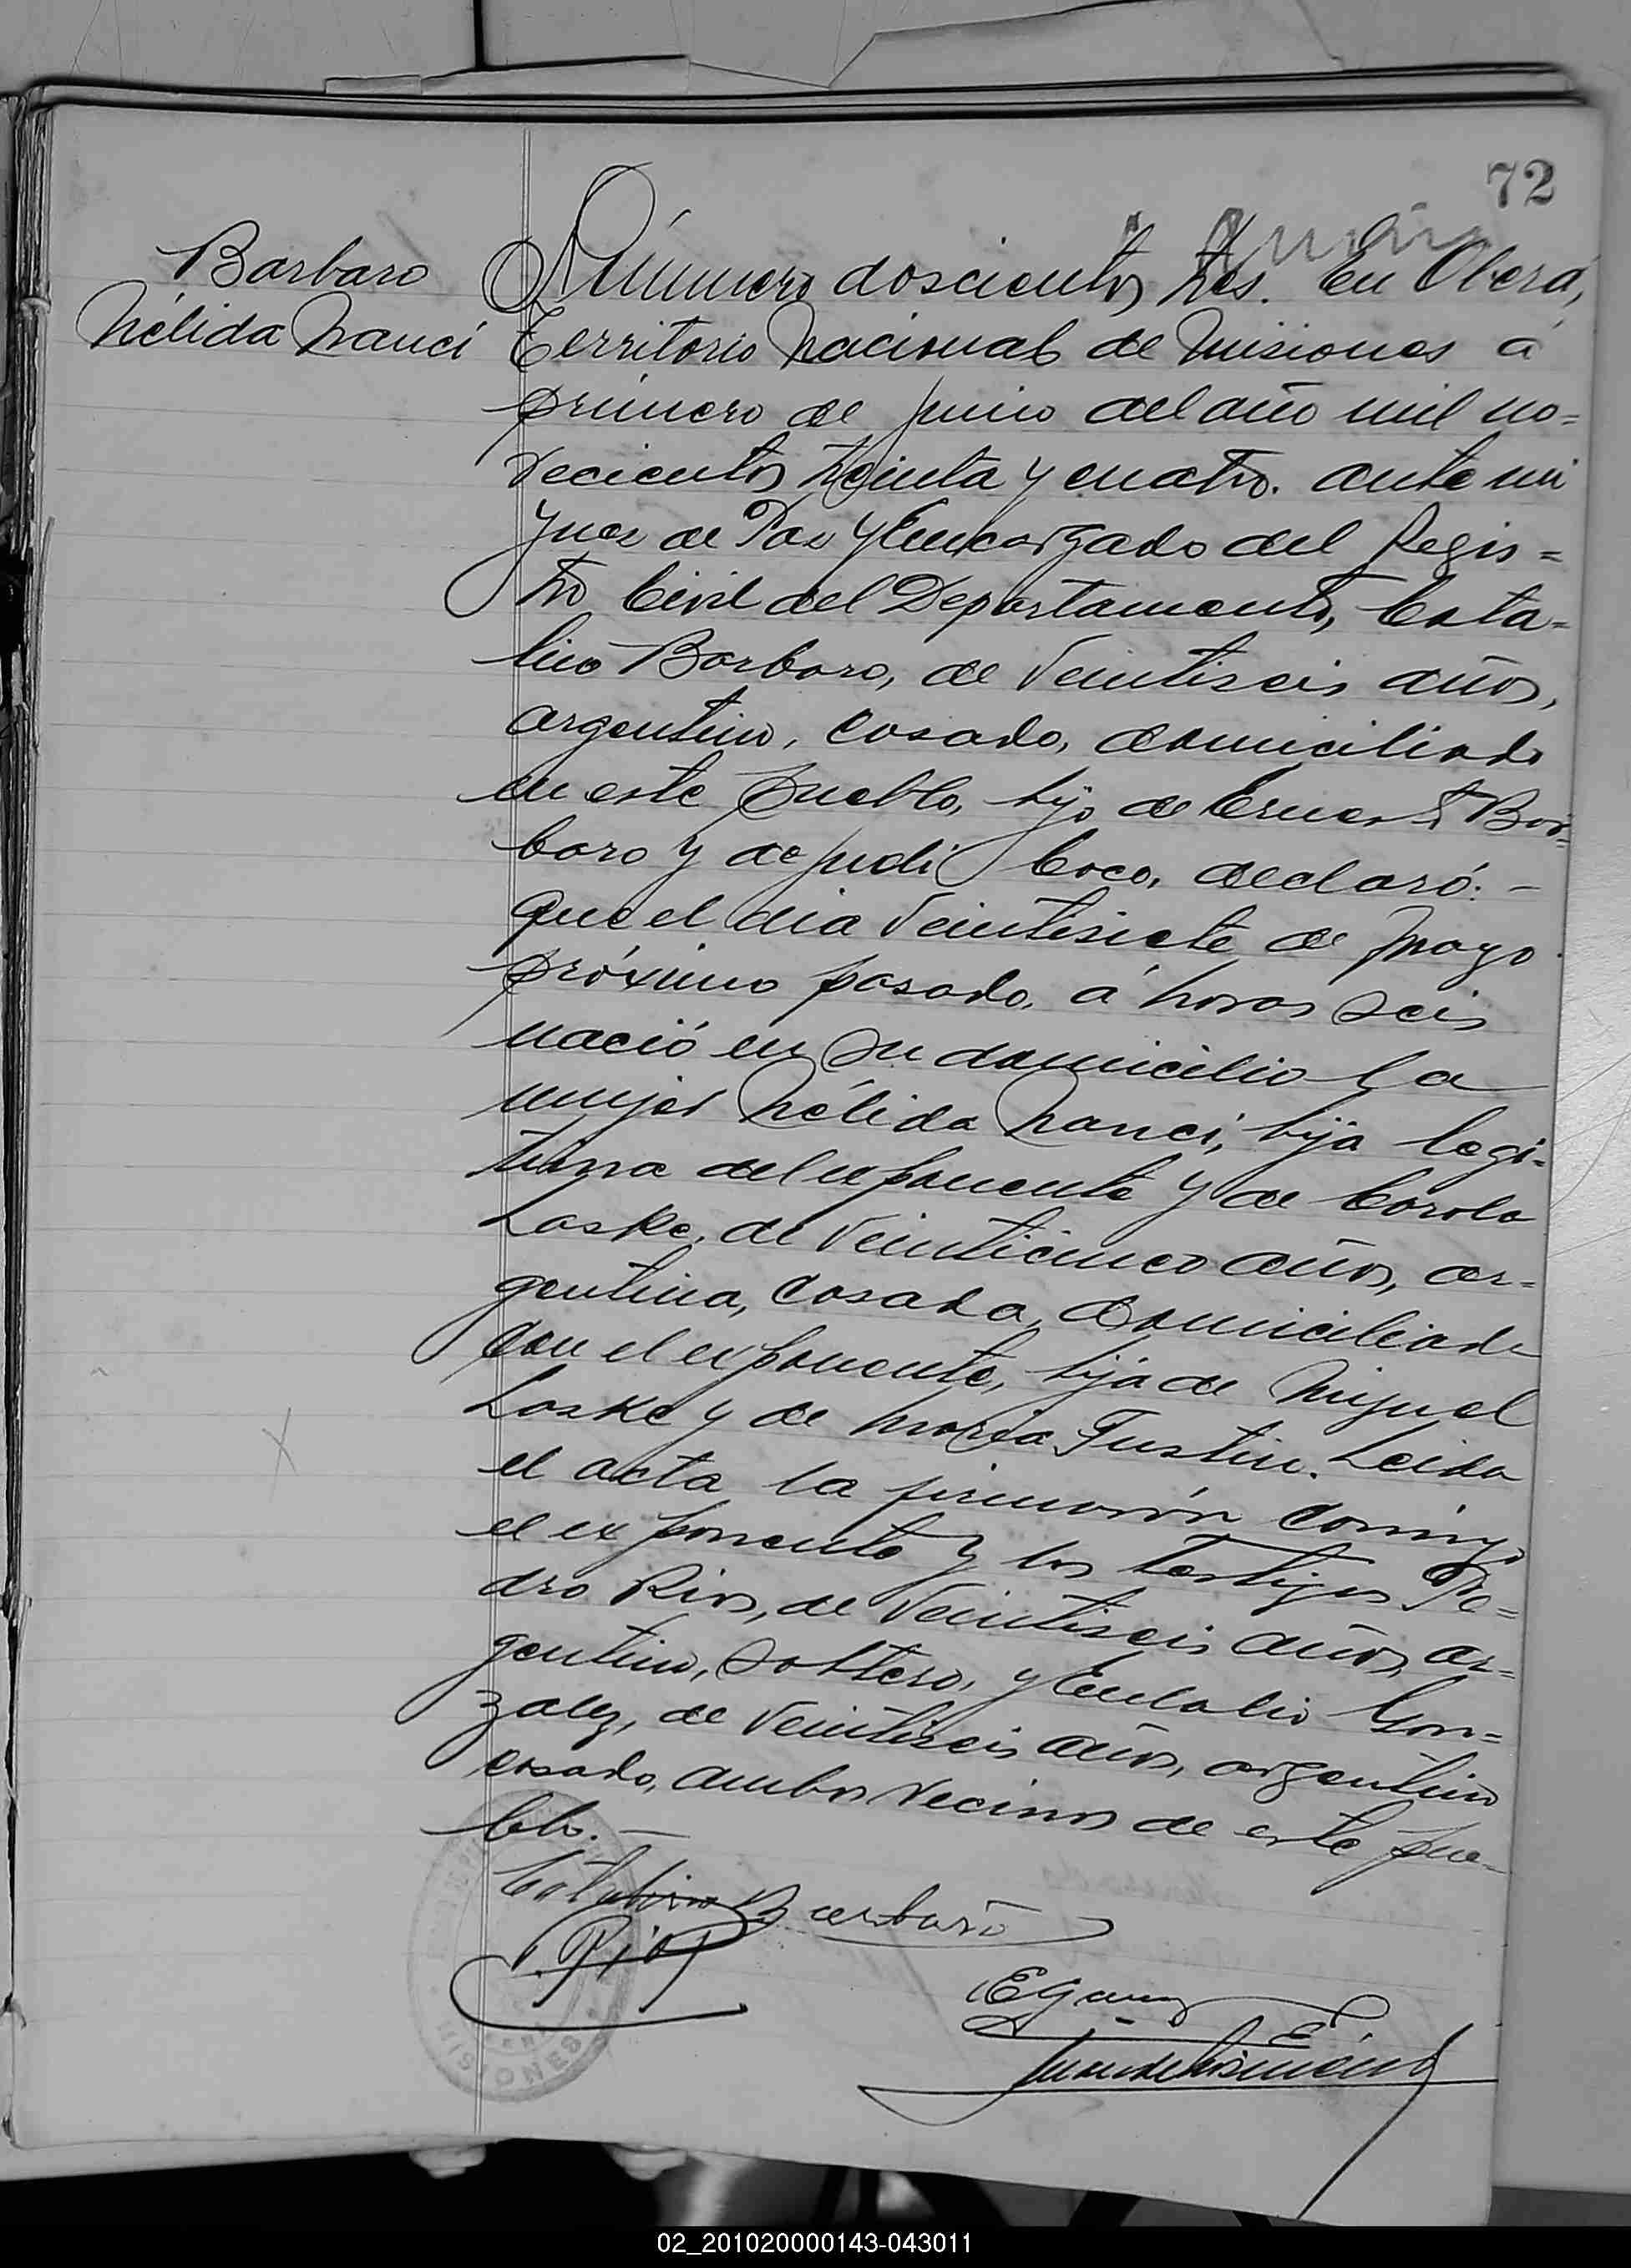 72
Barbaro
Nélida Nanci
Número doscientos tres. En Oberá,
Territorio Nacional de Misiones á
primero de junio del año mil no=
vecientos treinta y cuatro. ante mi
Juez de Paz y Encargado del Regis=
tro Civil del Departamento, Cata=
lino Barbaro, de veintiseis años,
argentino, casado, domiciliado
en este pueblo, hijo de Ernesto Bar=
baro y de Coco, declaró: -
que el dia veintisiete de mayo
próximo pasado, á horas seis
nació en su domicilio la
mujer Nélida Nanci, hija legi=
tima del exponente y de Carola
Laske, de veinticinco años, ar=
gentina, casada, domiciliada
con el exponente, hija de Miguel
Laske y de Maria Fustin. Leida
el acta la firmarón conmigo
el exponente y los testigos Pe=
dro Rios, de veintiseis años, ar=
gentino, soltero, y Eulalio Gon=
zalez, de veintiseis años, argentino
casado, ambos vecinos de este pue-
blo. -
Catalino Barbaro
P. Rios
MISIONES
02_201020000143-043011